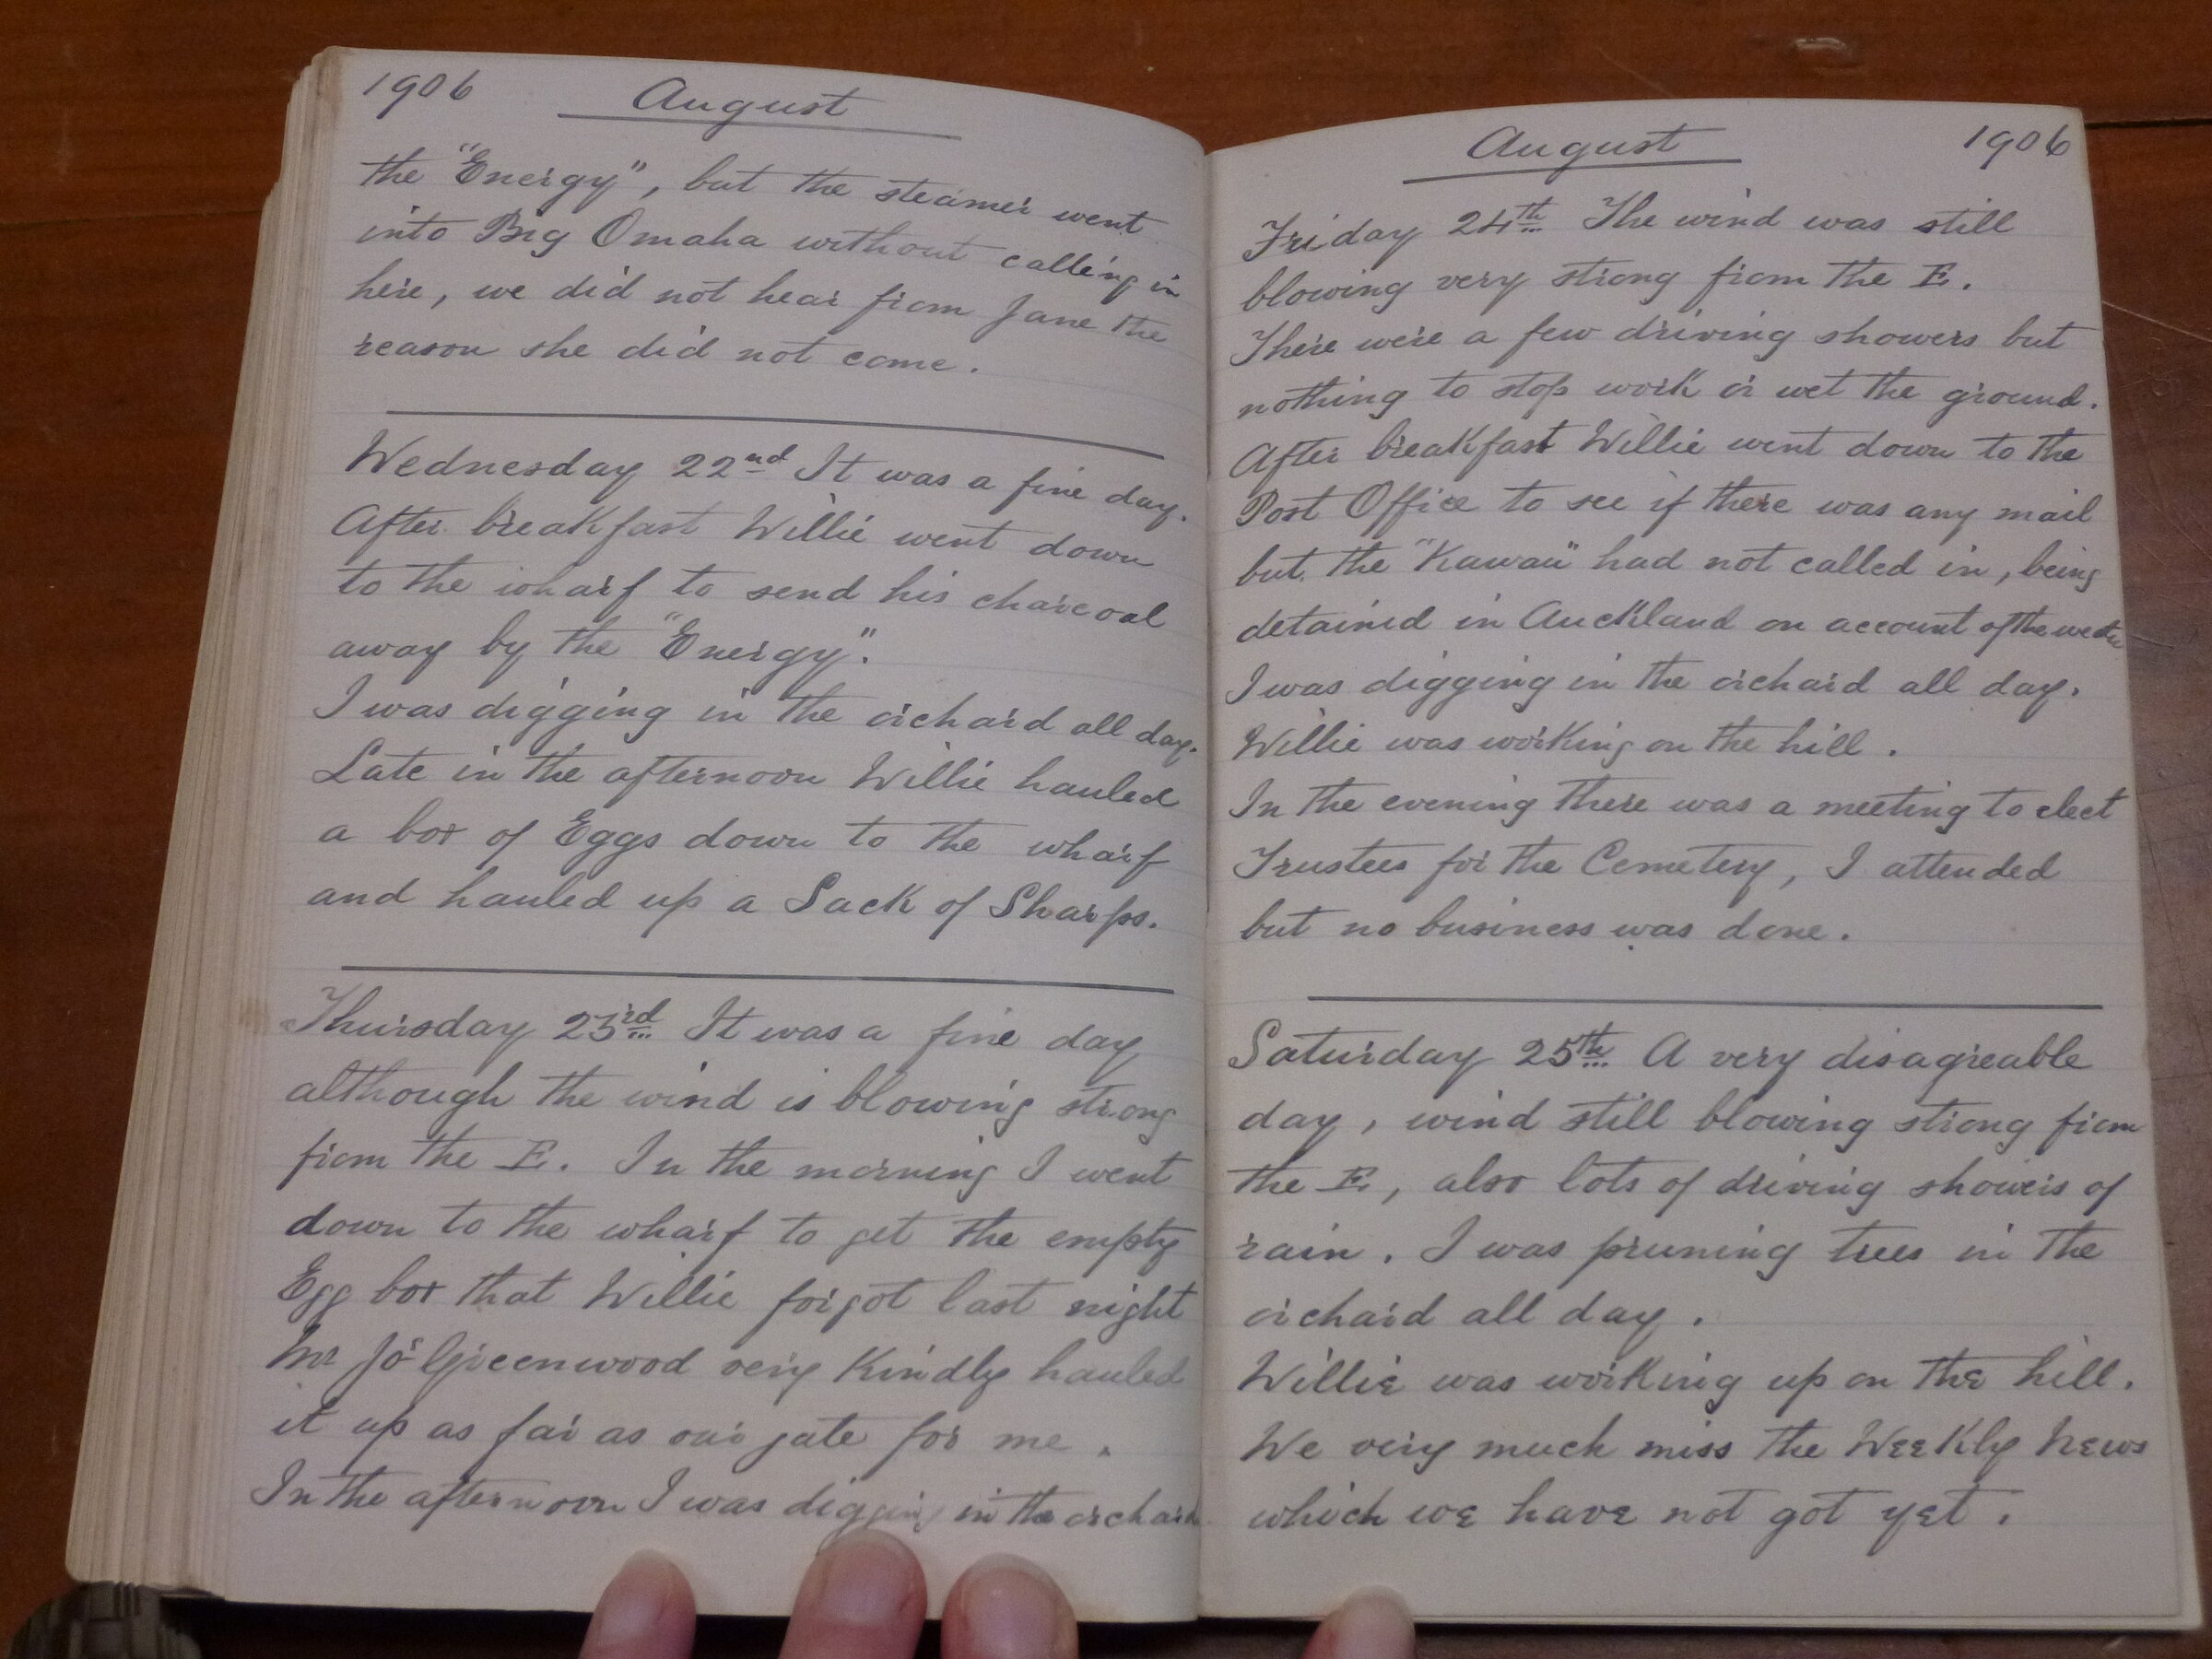 1906 August
the "Energy", but the steamer went
into Big Omaha without calling in
here, we did not hear from Jane the
reason she did not come.
Wednesday 22nd It was a fine day.
After breakfast Willie went down
to the wharf to send his charcoal
away by the "Energy".
I was digging in the orchard all day.
Late in the afternoon Willie hauled
a box of Eggs down to the wharf
and hauled up a Sack of Sharps.
Thursday 23rd It was a fine day
although the wind is blowing strong
from the E. In the morning I went
down to the wharf to get the empty
Egg box that Willie forgot last night
Mr Jo Greenwood very kindly hauled
it up as far as our gate for me.
In the afternoon I was digging in the orchard
August 1906
Friday 24th The wind was still
blowing very strong from the E.
There were a few driving showers but
nothing to stop work or wet the ground.
After breakfast Willie went down to the
Post Office to see if there was any mail
but the "Kawau" had not called in, being
detained in Auckland on account of the
I was digging in the orchard all day.
Willie was working on the hill.
In the evening there was a meeting to elect
Trustees for the Cemetery, I attended
but no business was done.
Saturday 25th A very disagreable
day, wind still blowing strong from
the E, also lots of driving showers of
rain. I was pruning trees in the
orchard all day.
Willie was working up on the hill.
We very much miss the Weekly News
which we have not got yet.